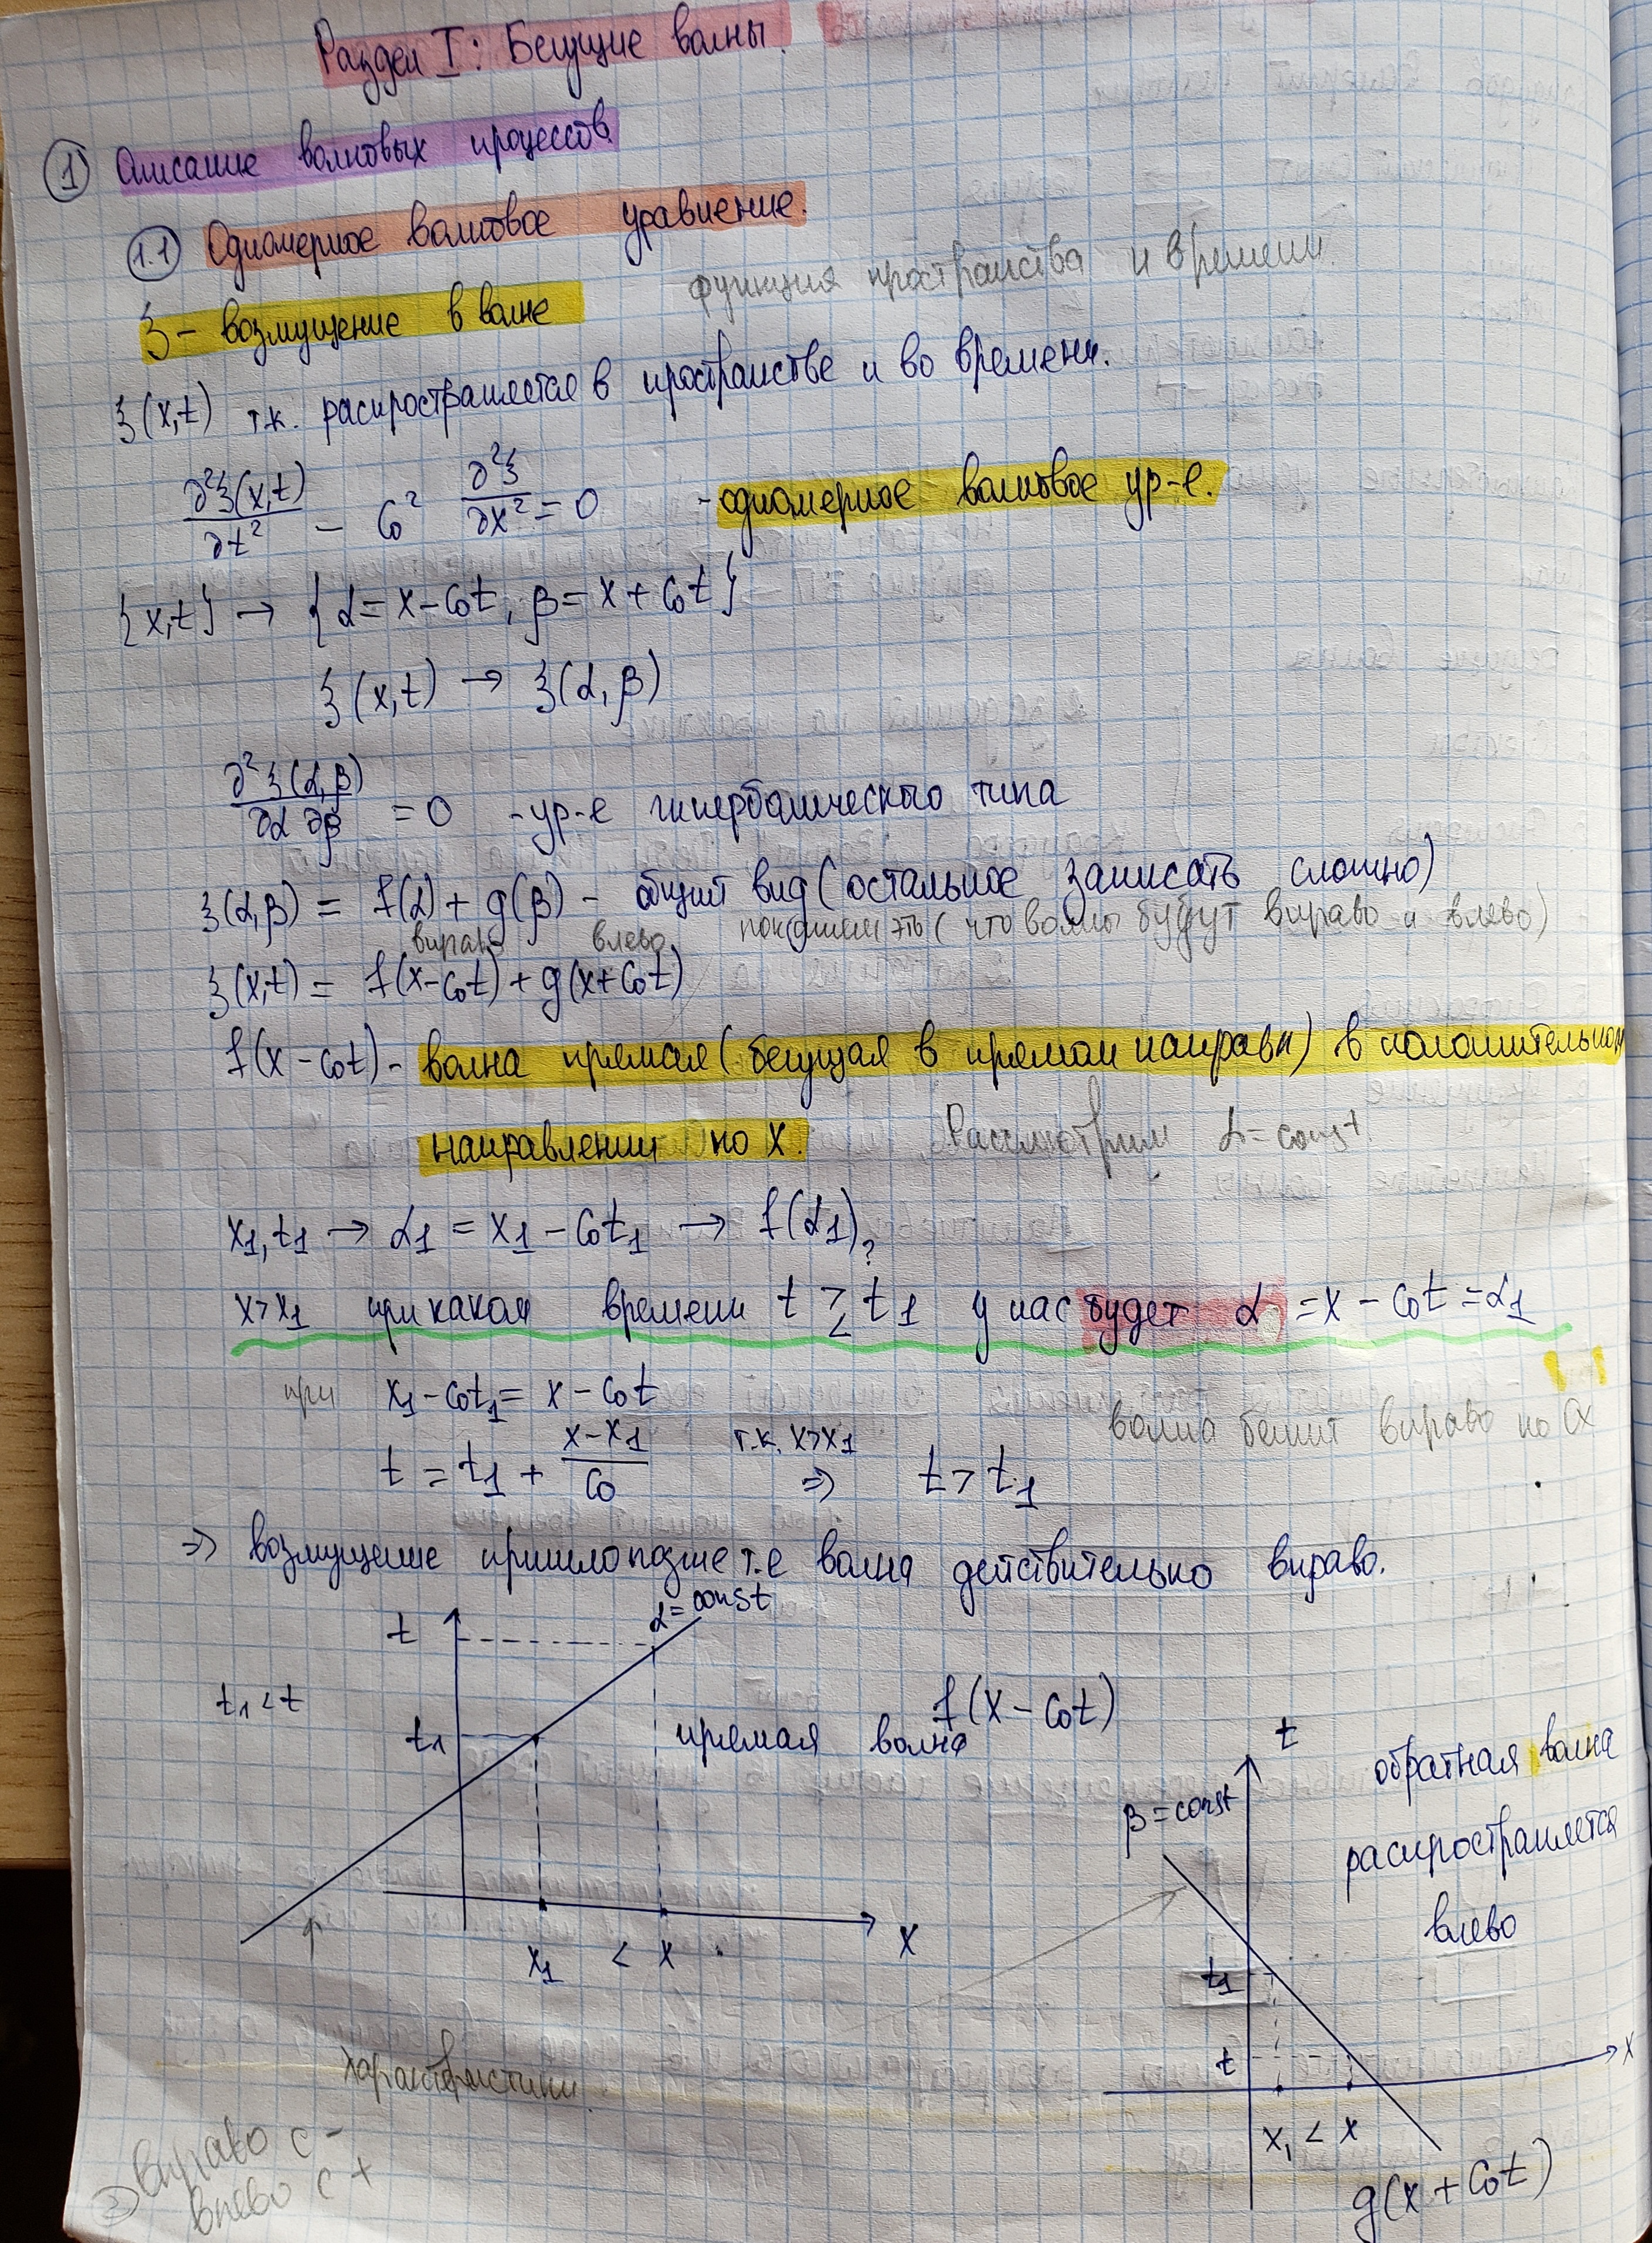 Раздел I: Бегущие волны.
① Описание волновых процессов.
1.1 Одномерное волновое уравнение.
ξ - возмущение в волне
функция пространства и времени.
ξ(x,t) т.к. распространяется в пространстве и во времени.
∂²ξ(x,t)/∂t² - C₀² ∂²ξ/∂x² = 0 - одномерное волновое ур-е.
{x,t} → {α = x - C₀t, β = x + C₀t}
ξ(x,t) → ξ(α,β)
∂²ξ(α,β)/∂α ∂β = 0 - ур-е гиперболического типа
ξ(α,β) = f(α) + g(β) - общий вид (остальное записать сложно)
вправо влево покажем это (что волны бегут вправо и влево)
ξ(x,t) = f(x-C₀t) + g(x+C₀t)
f(x-C₀t) - волна прямая (бегущая в прямом направл) в положительном
направлении по x. Рассмотрим α = const.
x₁,t₁ → α₁ = x₁ - C₀t₁ → f(α₁)
x>x₁ при каком времени t ≷ t₁ ? у нас будет α = x - C₀t = α₁
при x₁ - C₀t₁ = x - C₀t
волна бежит вправо по OX
t = t₁ + (x-x₁)/C₀ т.к. x>x₁ ⇒ t > t₁
⇒ возмущение пришло позже т.е волна действительно вправо.
α = const
t
t₁ < t
t₁
x₁ < x
x
прямая волна f(x-C₀t)
t
обратная волна
распространяется
влево
β = const
t₁
t
x
x₁ < x
g(x+C₀t)
характеристики.
вправо с -
влево с +